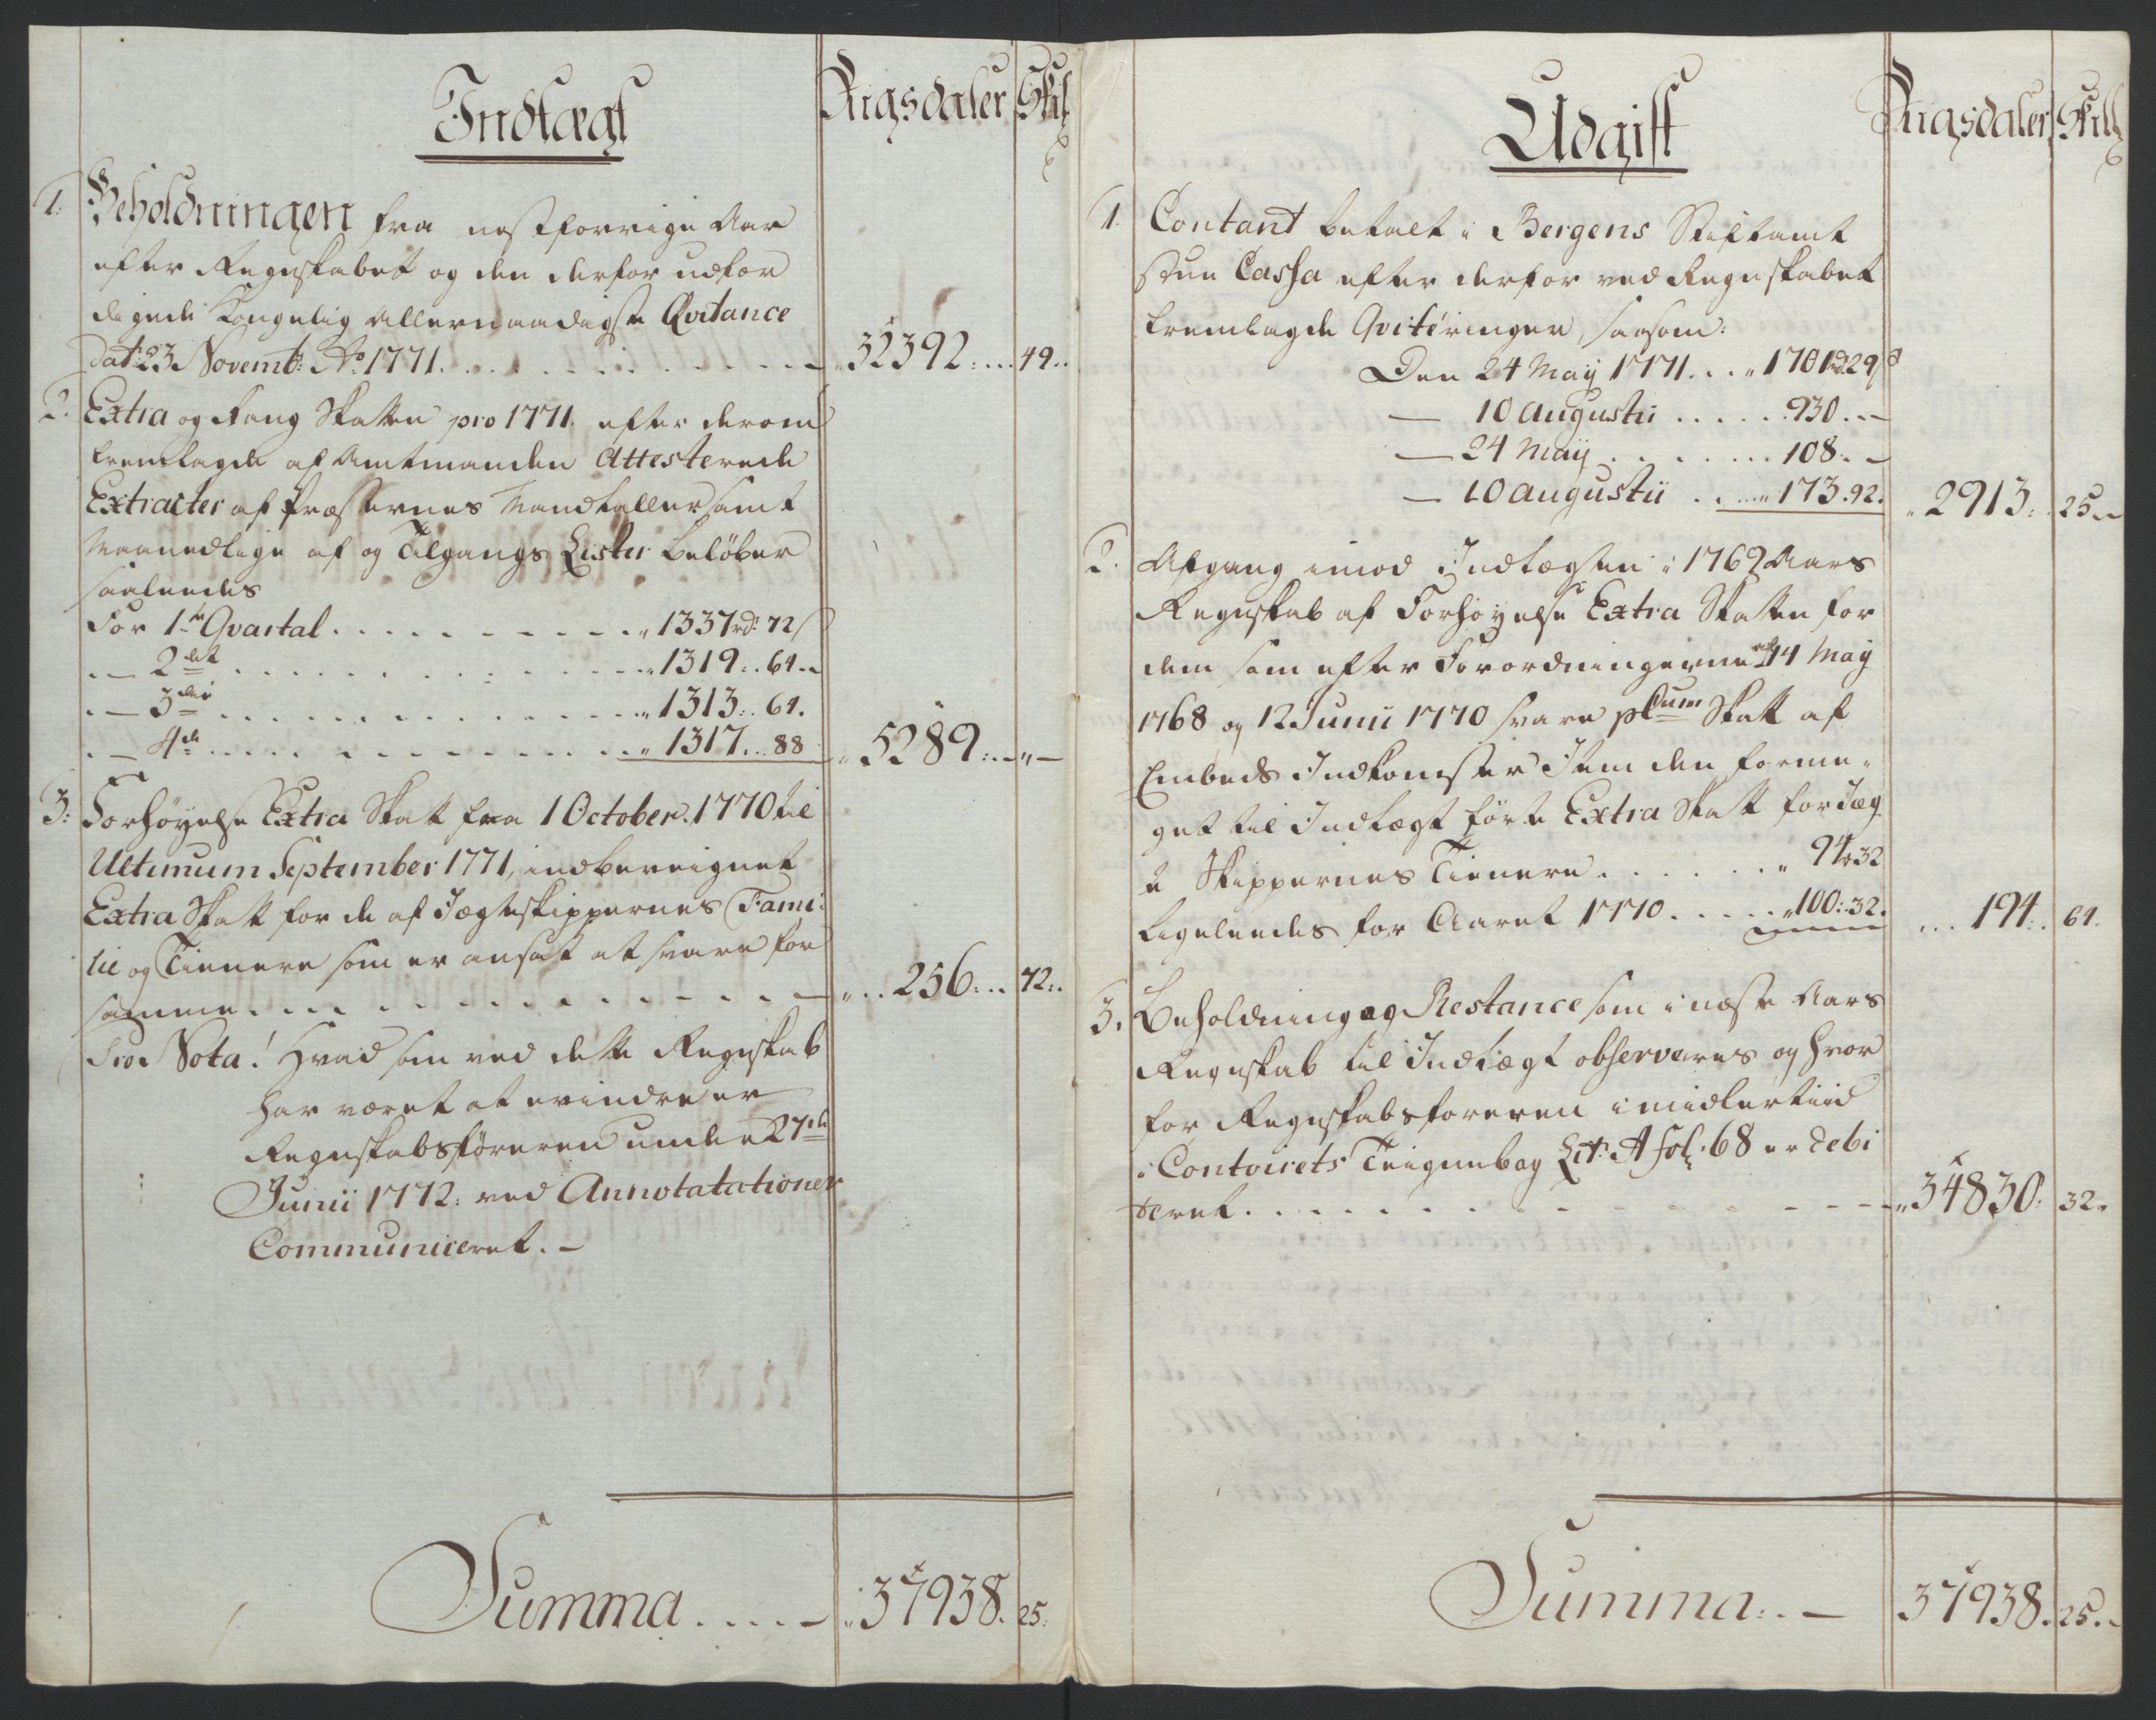 Indtægt
Rigsdaler Skil
1. Beholdningen fra nestforrige Aar
efter Regnskabet og den derfor udfær
digede Kongelig Allernaadigste Qvitance
Dat: 23 Novemb: Ao 1771. 32392: 49.
2. Extra og Rang Skatten pro 1771. efter derom
fremlagde af Amtmanden Attesterede
Extracter af Præsternes Mandtaller samt
Maanedlige af og Tilgangs Lister beløber
saaledes
For 1te Qvartal . . . 1337rd: 72s
— 2det . . . 1319: 64.
— 3die . . . 1313: 64.
— 4de . . . 1317. 88 5289: „ —
3: Forhøyelse Extra Skatt fra 1 October. 1770 til
Ultimum September 1771, indbereignet
Extra Skatt for de af Jægteskippernes Fami-
lie og Tienere som er ansat at svare for
samme . . . 256: 72:
Nota! Hvad som ved dette Regnskab
har været at erindre er
Regnskabsføreren under 27de
Junii 1772: ved Annotatationer
Communiceret. —
Summa . . . — 37938. 25:
Udgift
Rigsdaler Skill
1. Contant betalt i Bergens Stiftamt
stue Cassa efter derfor ved Regnskabet
fremlagde Qviteringer, saasom:
Den 24 Maij 1771. . . 1701rd. 29s
— 10 Augustii . . . 930. —
— 24 Maij . . . 108. —
— 10 Augustii . . . 173. 92. 2913: 25.
2. Afgang imod Indtægten i 1769 Aars
Regnskab af Forhøyelse Extra Skatten for
dem som efter Forordningerne af 14 Maij
1768 og 12 Junii 1770 svare pCtum Skatt af
Embeds Indkomster Item den forme-
get til Indtægt førte Extra Skatt for Jæg
te Skippernes Tienere . . . 94. 32
Ligeledes for Aaret 1770. . . 100: 32. 194: 64.
3. Beholdning og Restance som i næste Aars
Regnskab til Indtægt observeres og hvor
for Regnskabsføreren imidlertiid
i Contoirets Teignebog Lit: A fol: 68 er debi
teret. . . . 34830. 32.
Summa . . — 37938. 25.